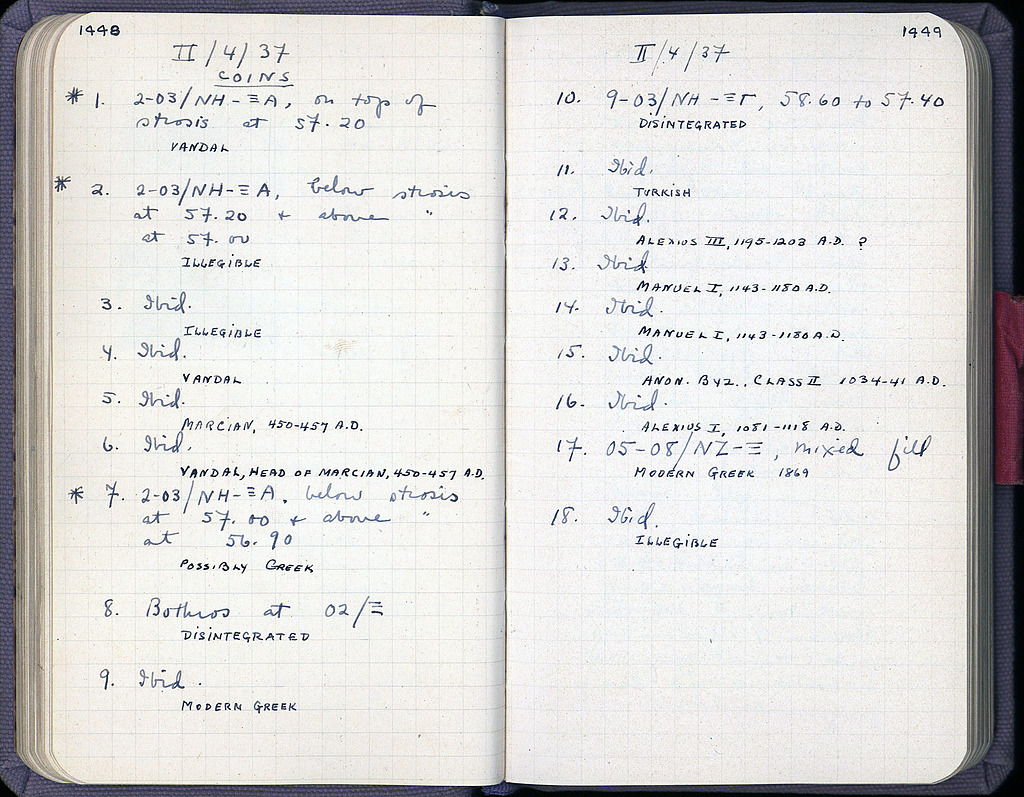 1448
II/4/37
COINS
* 1. 2-03/NH-ΞA, on top of
strosis at 57.20
VANDAL
* 2. 2-03/NH-ΞA, below strosis
at 57.20 + above "
at 57.00
ILLEGIBLE
3. Ibid.
ILLEGIBLE
4. Ibid.
VANDAL
5. Ibid.
MARCIAN, 450-457 A.D.
6. Ibid.
VANDAL, HEAD OF MARCIAN, 450-457 A.D.
* 7. 2-03/NH-ΞA, below strosis
at 57.00 + above "
at 56.90
POSSIBLY GREEK
8. Bothros at 02/Ξ
DISINTEGRATED
9. Ibid.
MODERN GREEK
1449
II/4/37
10. 9-03/NH-ΞΓ, 58.60 to 57.40
DISINTEGRATED
11. Ibid.
TURKISH
12. Ibid.
ALEXIUS III, 1195-1203 A.D. ?
13. Ibid
MANUEL I, 1143-1180 A.D.
14. Ibid.
MANUEL I, 1143-1180 A.D.
15. Ibid.
ANON. BYZ., CLASS II 1034-41 A.D.
16. Ibid.
ALEXIUS I, 1081-1118 A.D.
17. 05-08/NZ-Ξ, mixed fill
MODERN GREEK 1869
18. Ibid.
ILLEGIBLE